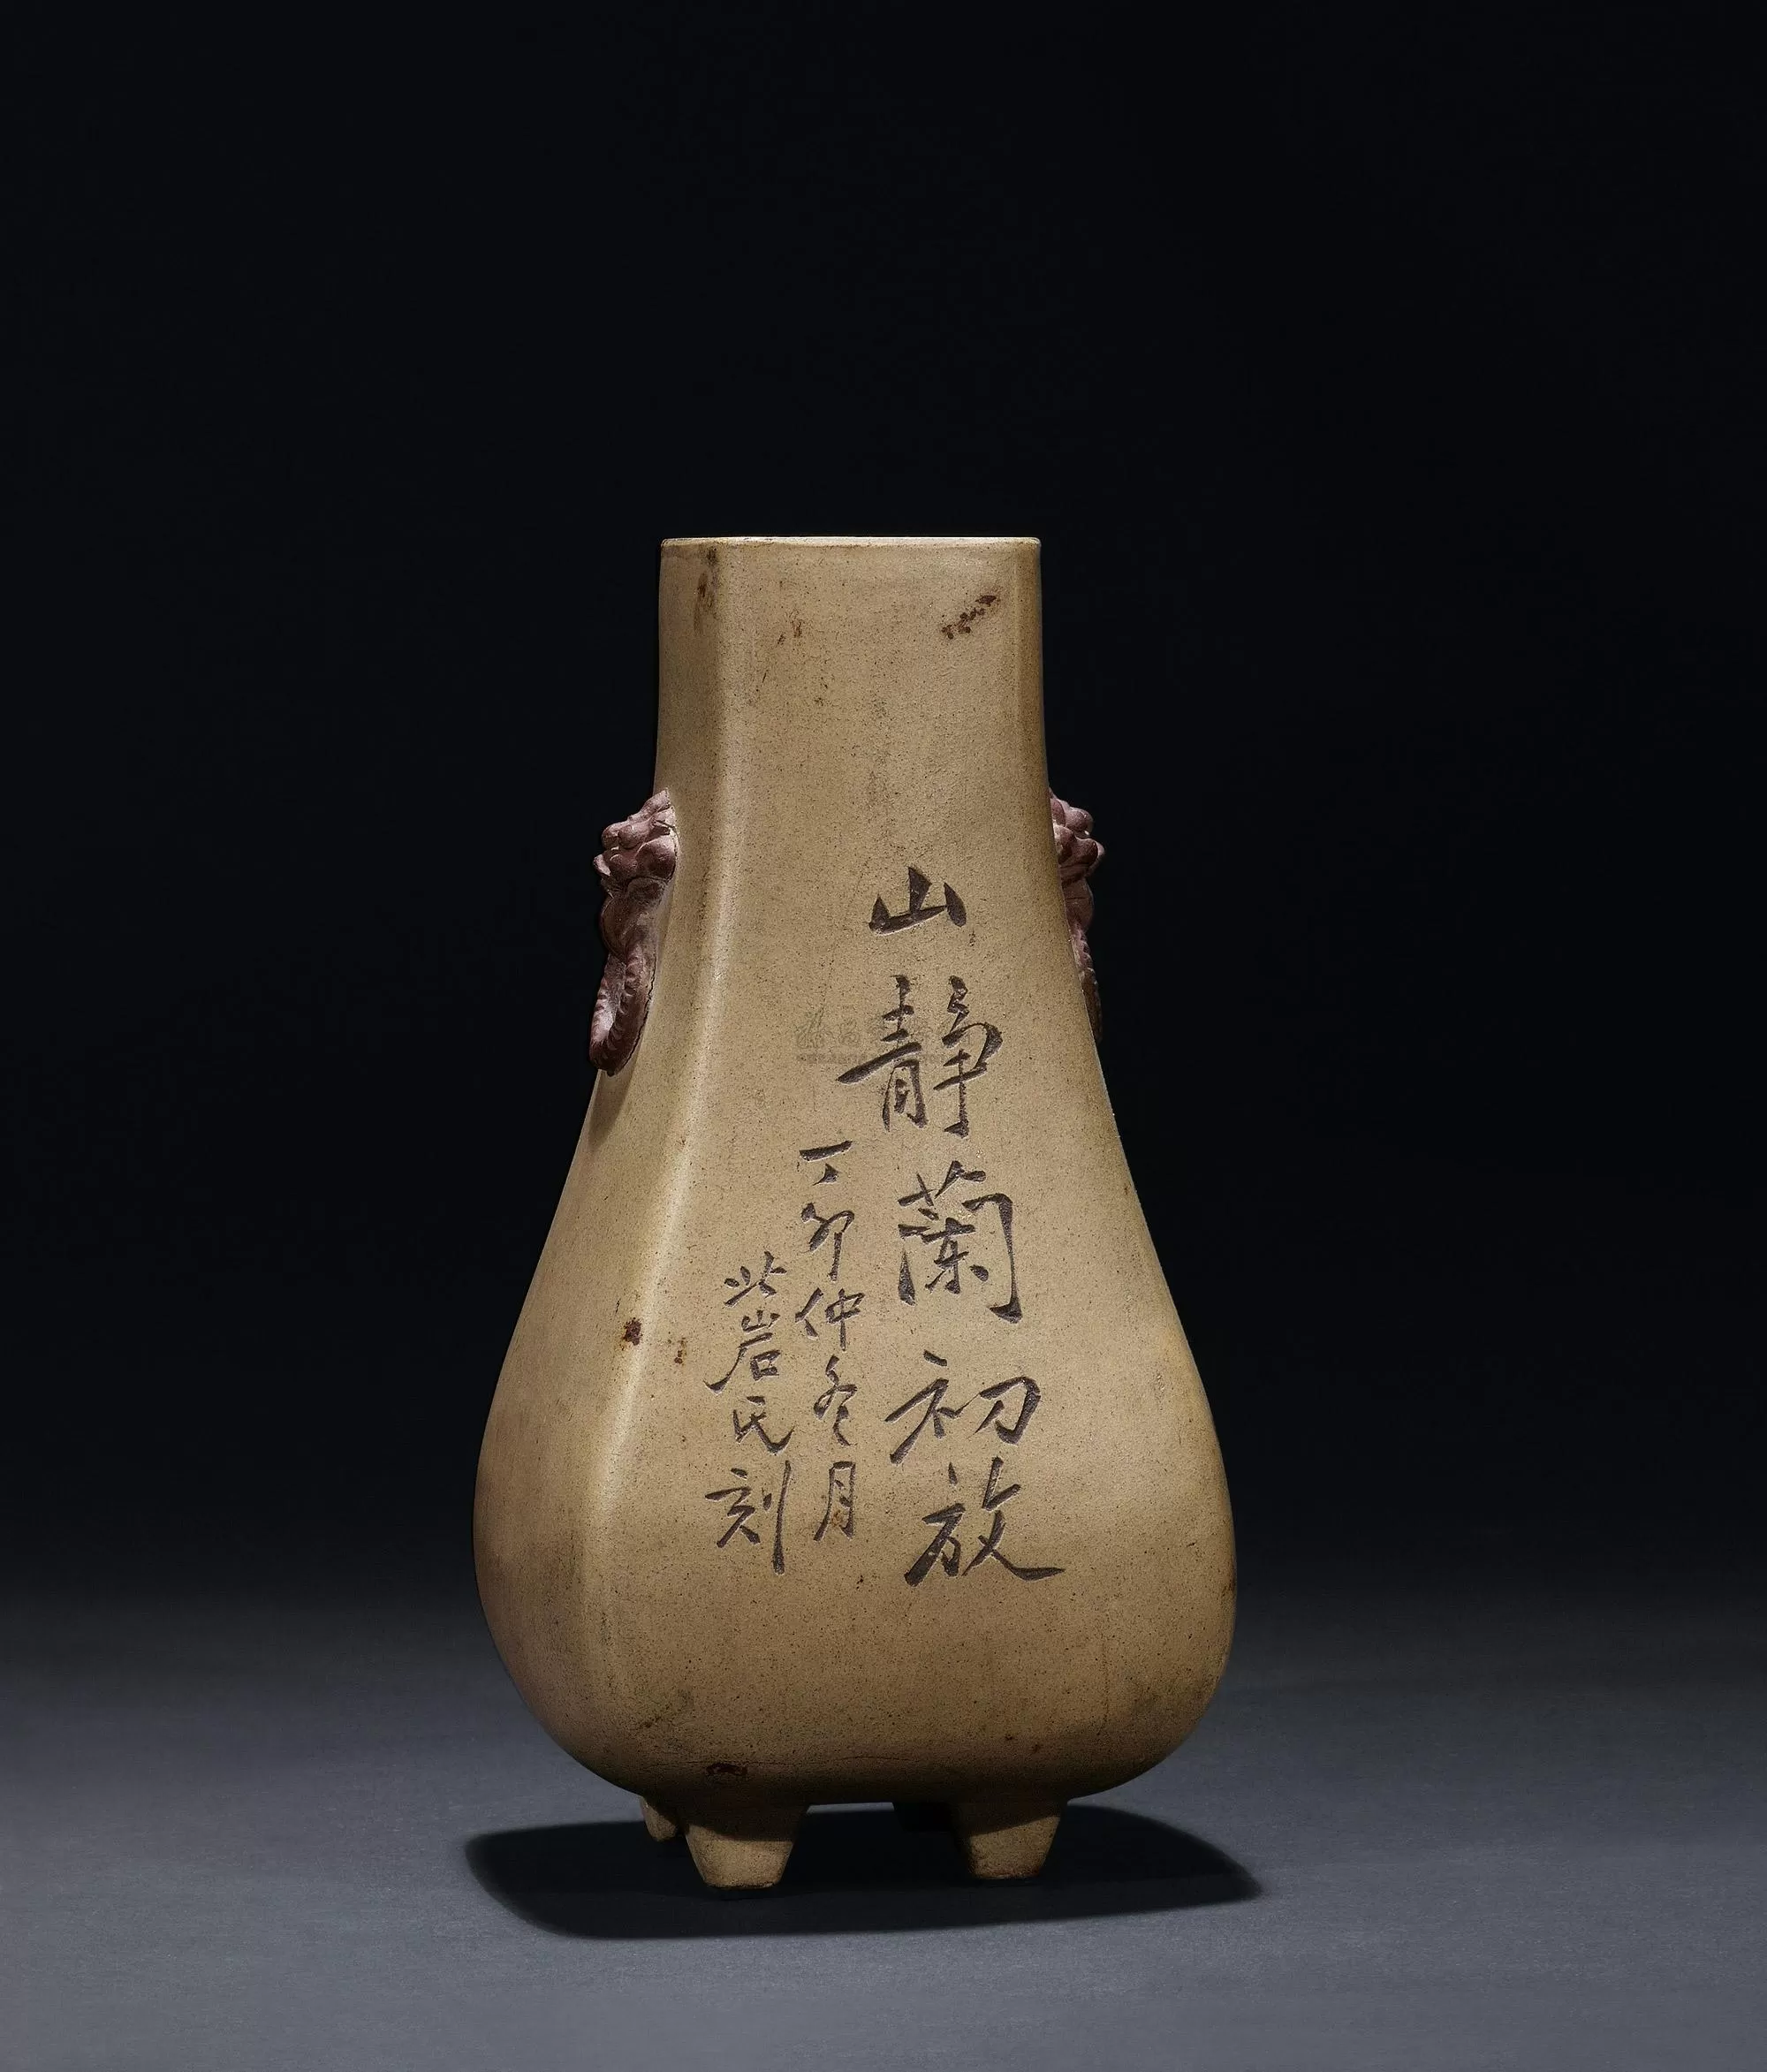 山靜蘭初放
丁卯仲冬月
岩氏刻